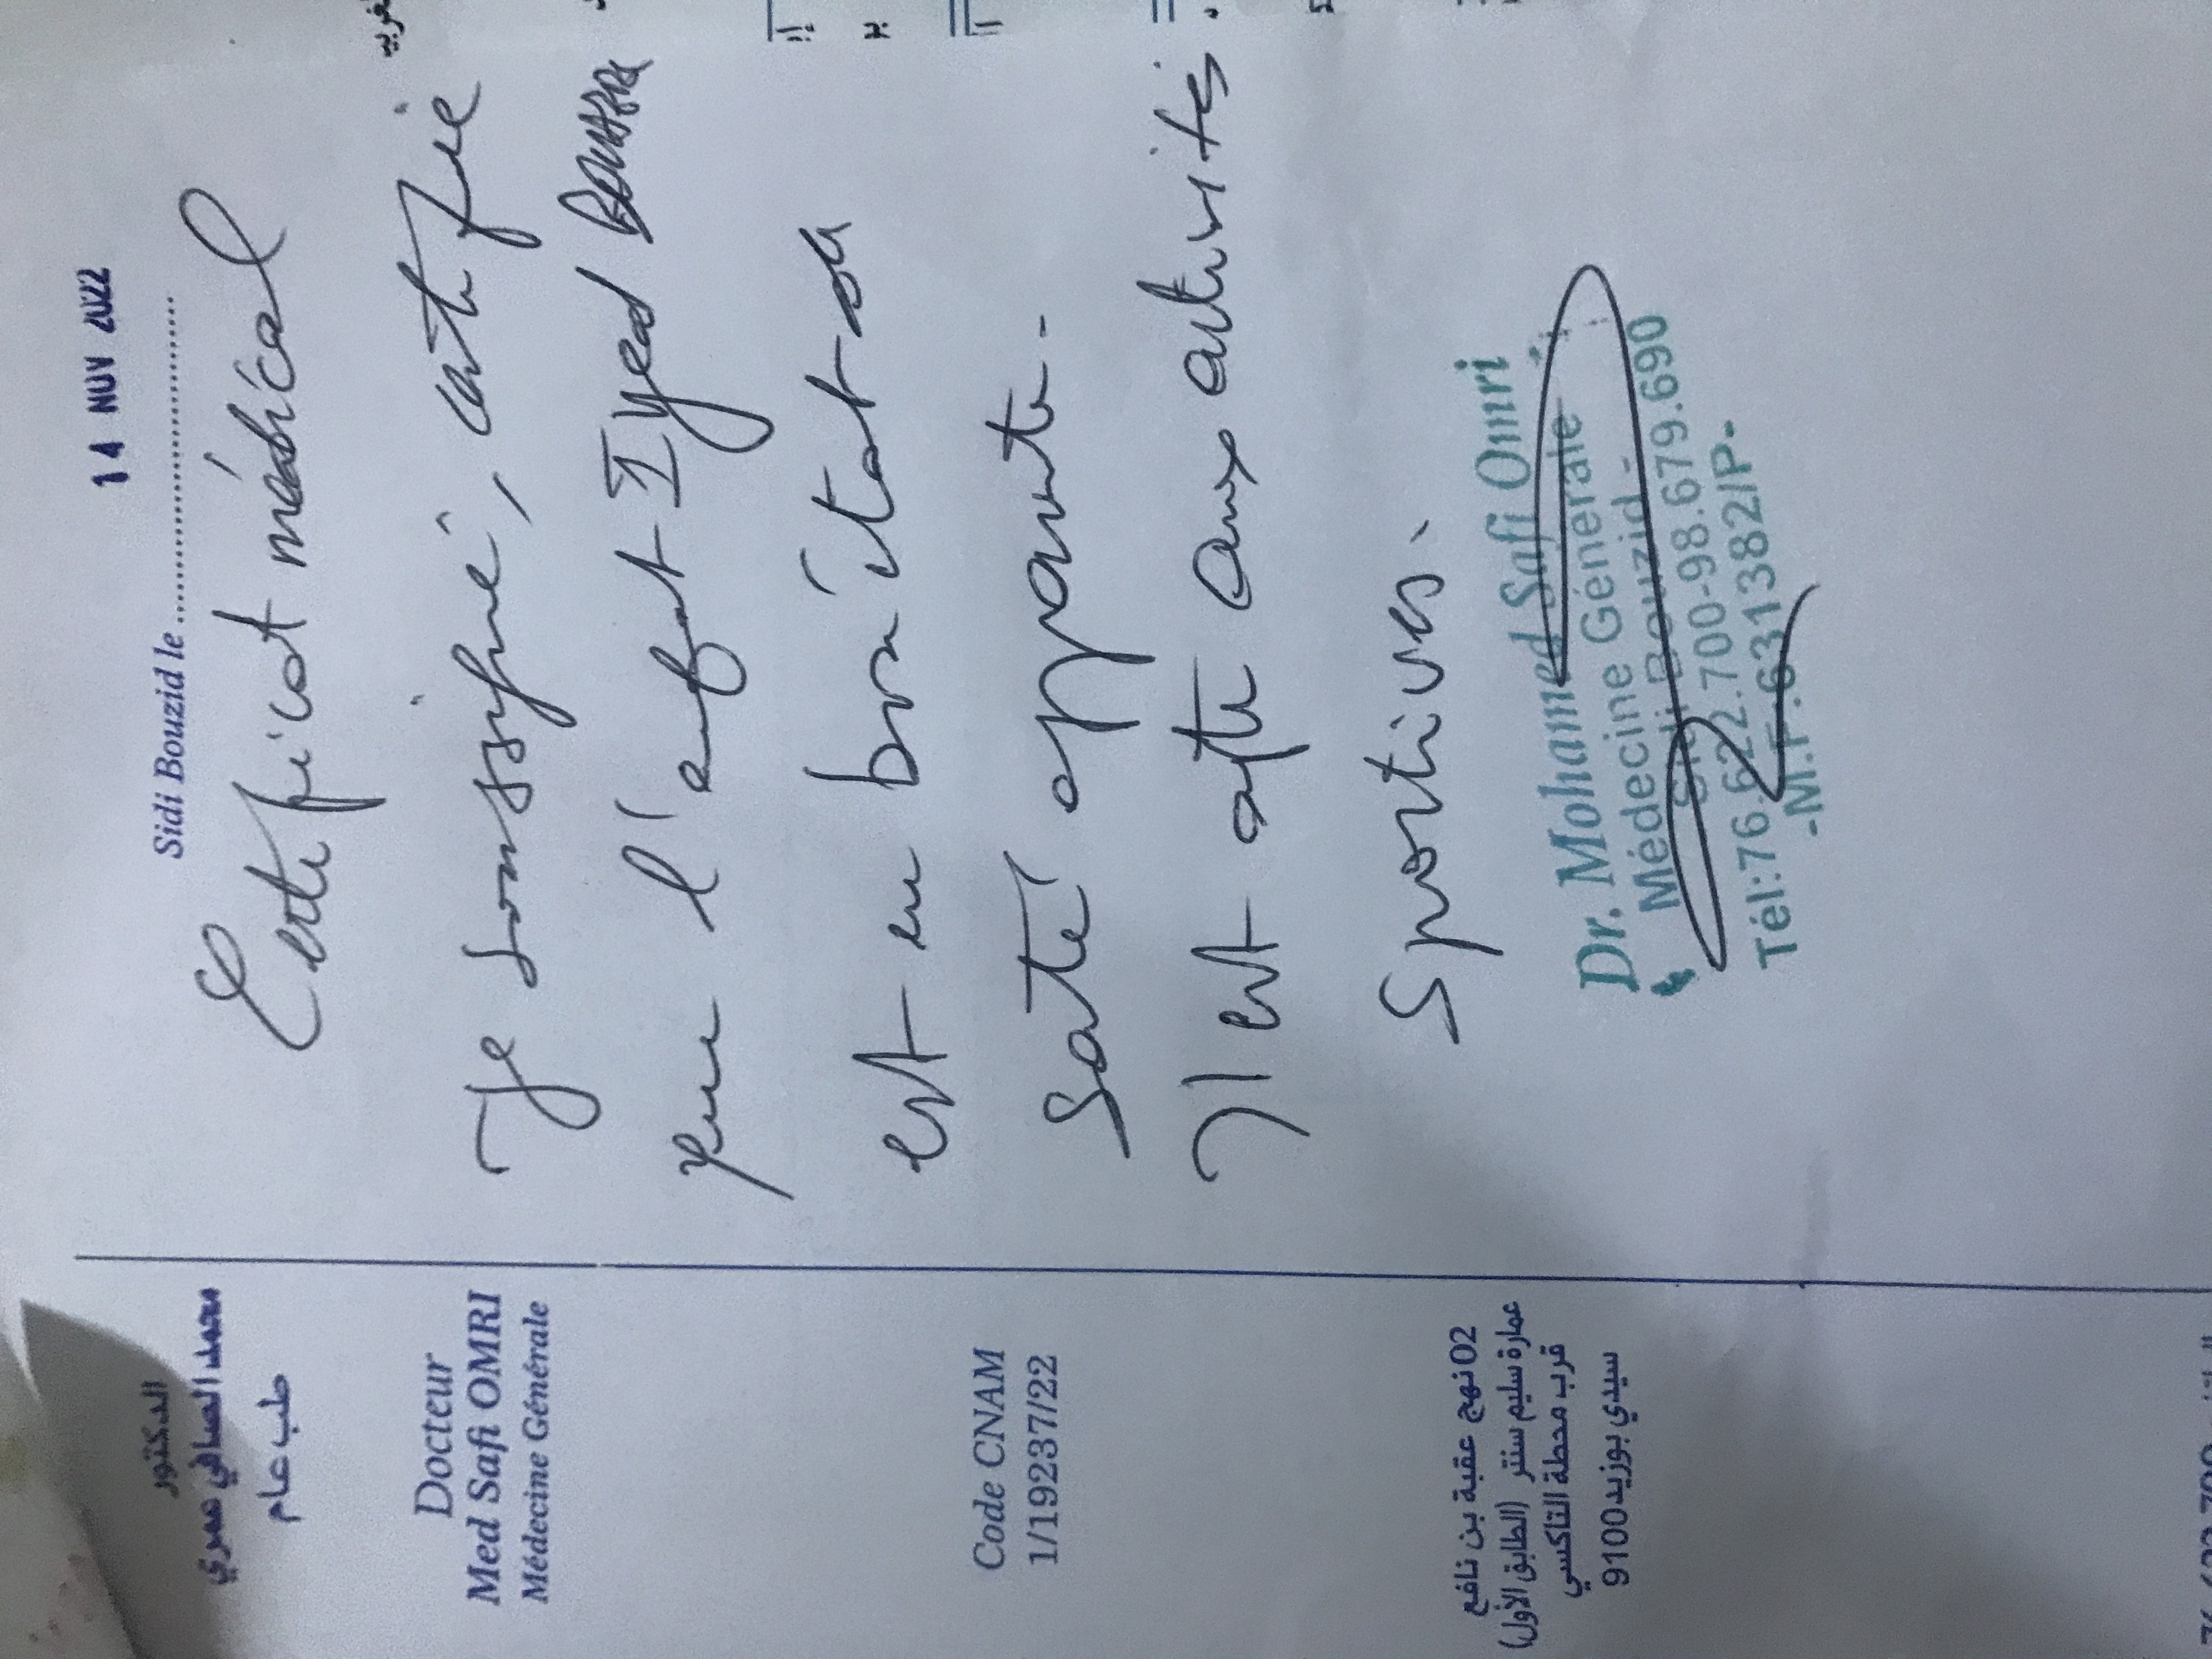 الدكتور
محمد الصافي عمري
طب عام
Docteur
Med Safi OMRI
Médecine Générale
Code CNAM
1/19237/22
02 نهج عقبة بن نافع
عمارة سليم سنتر (الطابق الأول)
قرب محطة التاكسي
سيدي بوزيد 9100
14 NOV 2022
Sidi Bouzid le ........................
Certificat médical
Je soussigné, certifie
que l'enfant Iyed
est en bon état de
Santé apparente.
Il est apte aux activités
Sportives.
Dr. Mohamed Safi Omri
Médecine Générale
Sidi Bouzid -
Tél:76.622.700-98.679.690
-M.F.:631382/P.